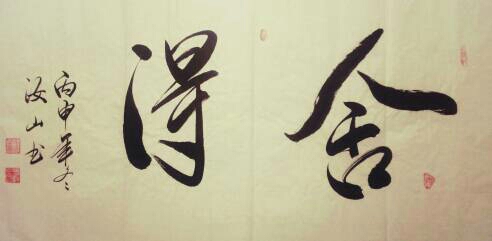 舍得
丙申年冬
汝山书